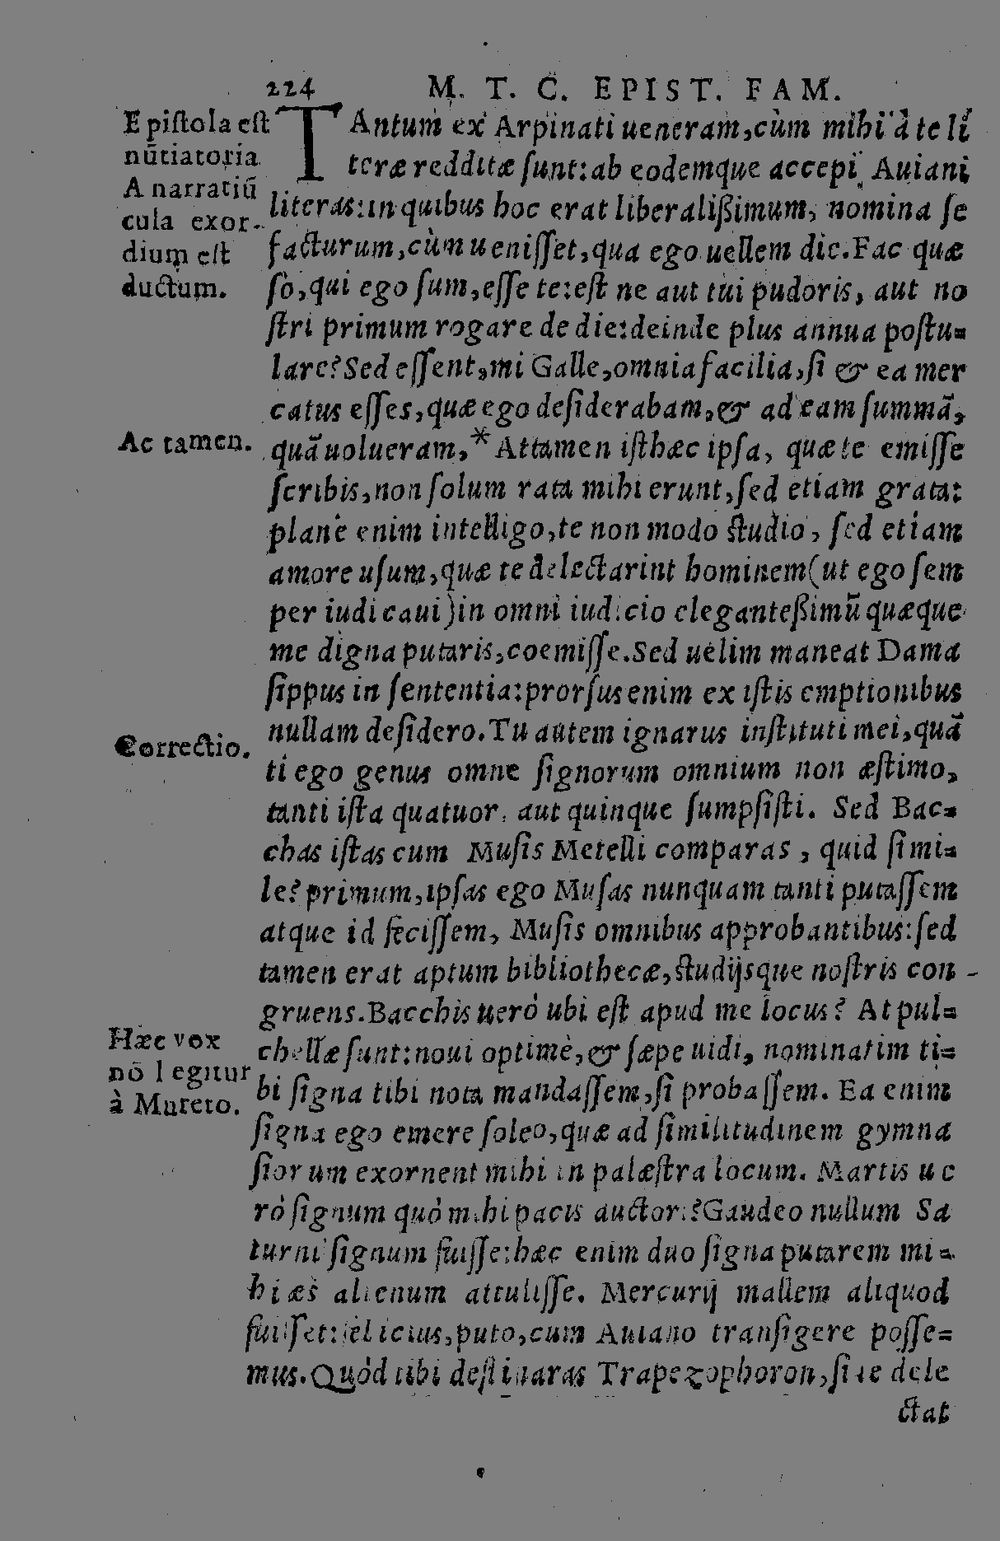 224 M. T. C. EPIST. FAM.
Epiſtola eſt
nũtiatoria
A narratiũ
cula exor-
dium eſt
ductum.
TAntum ex Arpinati ueneram, cùm mihi à te li
teræ redditæ ſunt: ab eodemque accepi Auiani
literas: in quibus hoc erat liberalißimum, nomina ſe
facturum, cùm ueniſſet, qua ego uellem die. Fac quæ
ſo, qui ego ſum, eſſe te: eſt ne aut tui pudoris, aut no
ſtri primum rogare de die: deinde plus annua poſtu-
lare? Sed eſſent, mi Galle, omnia facilia, ſi & ea mer
catus eſſes, quæ ego deſiderabam, & ad eam ſummã,
Ac tamen.
quã uolueram, * Attamen iſthæc ipſa, quæ te emiſſe
ſcribis, non ſolum rata mihi erunt, ſed etiam grata:
planè enim intelligo, te non modo ſtudio, ſed etiam
amore uſum, quæ te delectarint hominem (ut ego ſem
per iudicaui) in omni iudicio eleganteßimũ quæque
me digna putaris, coemiſſe. Sed uelim maneat Dama
ſippus in ſententia: prorſus enim ex iſtis emptionibus
Correctio.
nullam deſidero. Tu autem ignarus inſtituti mei, quã
ti ego genus omne ſignorum omnium non æſtimo,
tanti iſta quatuor, aut quinque ſumpſiſti. Sed Bac-
chas iſtas cum Muſis Metelli comparas, quid ſimi-
le? primum, ipſas ego Muſas nunquam tanti putaſſem
atque id feciſſem, Muſis omnibus approbantibus: ſed
tamen erat aptum bibliothecæ, ſtudijsque noſtris con-
gruens. Bacchis uerò ubi eſt apud me locus? At pul-
Hæc vox
nõ legitur
à Mureto.
chellæ ſunt: noui optimè, & ſæpe uidi, nominatim ti-
bi ſigna tibi nota mandaſſem, ſi probaſſem. Ea enim
ſigna ego emere ſoleo, quæ ad ſimilitudinem gymna
ſiorum exornent mihi in palæſtra locum. Martis ue
rò ſignum quò mihi pacis auctori? Gaudeo nullum Sa
turni ſignum fuiſſe: hæc enim duo ſigna putarem mi-
hi æs alienum attuliſſe. Mercurij mallem aliquod
fuiſſet: felicius, puto, cum Auiano tranſigere poſſe-
mus. Quòd tibi deſtinaras Trapezophoron, ſi te dele
ctat